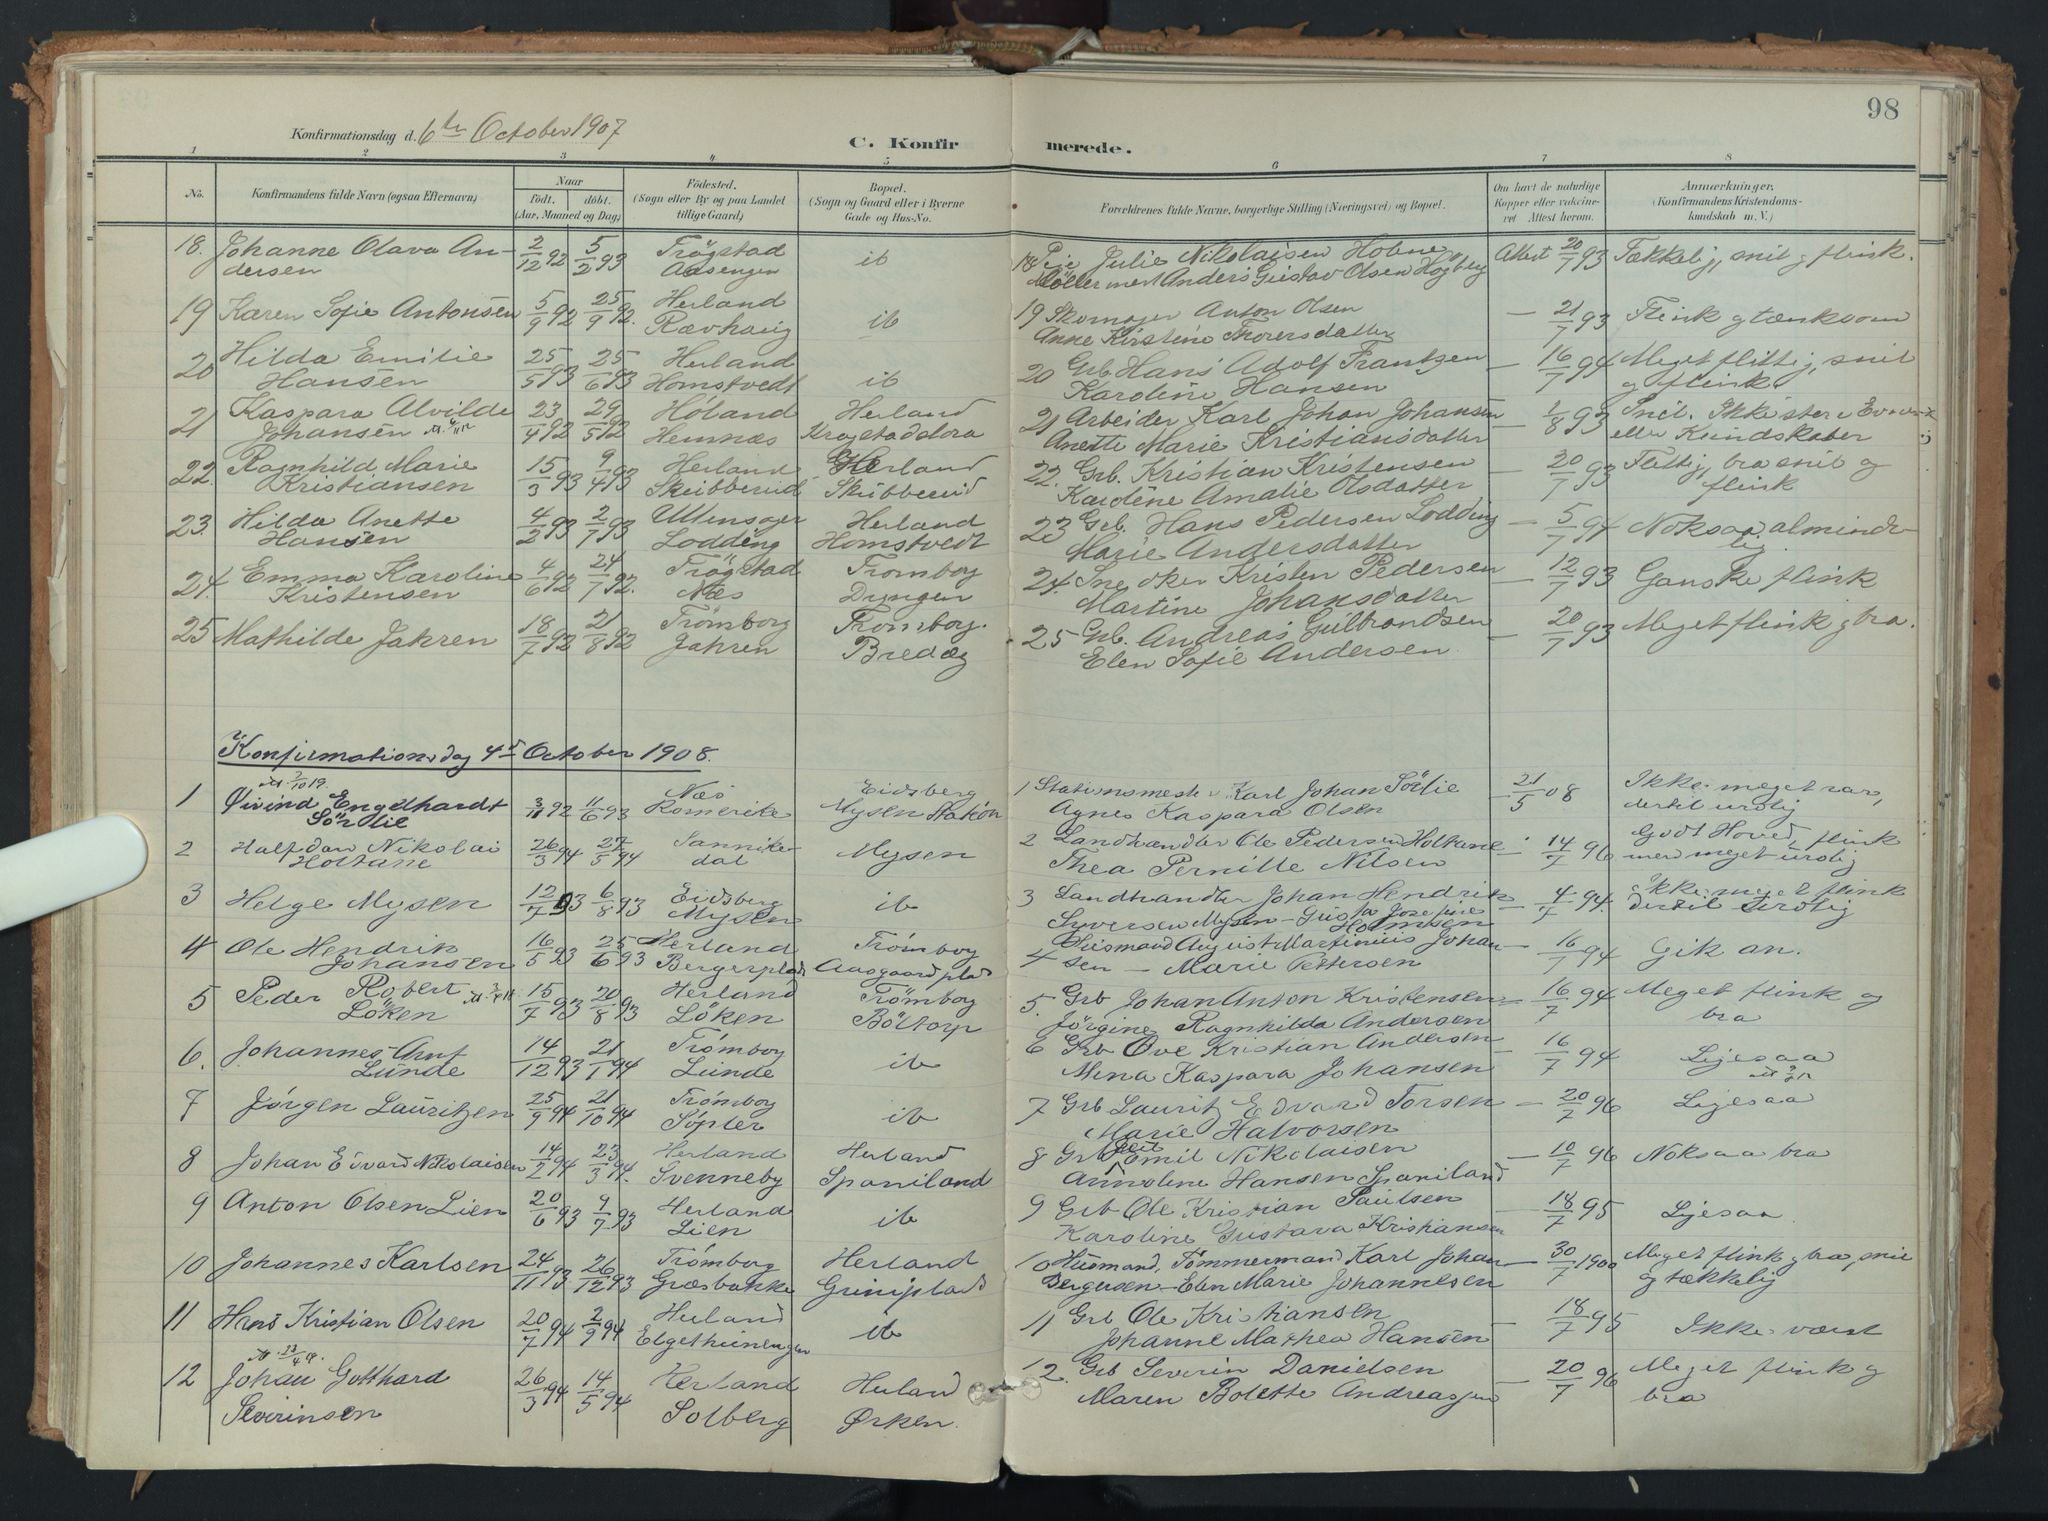 98
Konfirmationsdag d. 6te October 1907
C. Konfirmerede.
1 2 3 4 5 6 7 8
No.
Konfirmandens fulde Navn (ogsaa Efternavn)
Naar
Födt. döbt.
(Aar, Maaned og Dag)
Födested.
(Sogn eller By og paa Landet
tillige Gaard)
Bopæl.
(Sogn og Gaard eller i Byerne
Gade og Hus-No.
Forældrenes fulde Navne, borgerlige Stilling (Næringsvei) og Bopæl.
Om havt de naturlige
Kopper eller vaccine-
ret Attest herom.
Anmærkninger.
(Konfirmandens Kristendoms-
kundskab m. V.)
18. Johanne Olava An- 2/12 92 5/2 93 Trögstad ib 18 Pige Julie Nikolaisen Hobne Attest 20/7 93 Tækkelig, snil g flink.
dersen Aasengen Möller Anders Gustav Olsen Högberg
19 Karen Sofie Antonsen 5/9 92 25/9 92. Herland ib 19 Skomager Anton Olsen — 21/7 93 Flink g tænksom
Rævhaug Anne Kirstine Thorersdatter
20 Hilda Emilie 25/5 93 25/6 93 Herland ib 20 Grb Hans Adolf Frantzen — 16/7 94 Meget flittig, snil
Hansen Homstvedt Karoline Hansen g flink
21 Kaspara Alvilde 23/4 92 29/5 92 Höland Herland 21 Arbeider Karl Johan Johansen — 1/8 93 Snil. Ikke store Evner
Johansen Hemnæs Kragstadslora Anette Marie Kristiansdatter eller Kundskaber
22. Ragnhild Marie 15/3 93 9/4 93 Herland Herland 22. Grb. Kristian Kristensen — 20/7 93 Flittig, bra snil og
Kristiansen Skribberud Skribberud Karoline Amalie Olsdatter flink
23. Hilda Anette 4/2 93 2/7 93 Ullensager Herland 23 Grb. Hans Pedersen Lodding — 5/7 94 Noksaa alminde-
Hansen Lodding Homstvedt Marie Andersdatter lig
24. Emma Karoline 4/6 92 24/7 92. Trögstad Trömborg 24. Snedker Kristen Pedersen — 12/7 93 Ganske flink
Kristensen Næs Dyngen Martine Johansdatter
25 Mathilde Jahren 18/7 92 21/8 92 Trömborg Trömborg. 25 Grb. Andreas Gulbrandsen — 20/7 93 Meget flink g bra.
Jahren Bredæg Elen Sofie Andersen
Konfirmationsdag 4de October 1908.
1 Øivind Engelhardt 3/11 92 11/6 93 Næs Eidsberg 1 Stationsmester Karl Johan Sörlie 21/5 08 Ikke meget rar,
Sörlie Romerike Mysen Station Agnes Kaspara Olsen dertil urolig
2 Halfdan Nikolai 26/3 94 27/5 94 Sannike- Mysen 2 Landhandler Ole Pedersen Holtane — 14/7 96 Godt Hoved, flink
Holtane dal Thea Pernille Nilsen men meget urolig
3 Helge Mysen 12/7 93 6/8 93 Eidsberg ib 3 Landhandler Johan Hendrik — 4/7 94. Ikke meget flink
Mysen Syversen Mysen — Gusta Josefine Holmsen dertil urolig
4 Ole Hendrik 16/5 93 25/6 93 Herland Trömborg 4 Husmand August Martinius Johan- — 16/7 94 Gik an.
Johansen Bergerplads Aasgaardplad sen — Marie Pettersen
5 Peder Robert 15/7 93 20/8 93 Herland Trömborg 5. Grb Johan Anton Kristensen — 16/7 94 Meget flink og
Löken Löken Böltorp Jörgine Ragnhilda Andersen bra
6. Johannes Arnt 14/12 93 21/1 94 Trömborg ib 6 Grb Ove Kristian Andersen — 16/7 94 Ligesaa
Lunde Lunde Mina Kaspara Johansen
7 Jörgen Lauritzen 25/9 94 21/10 94 Trömborg ib 7 Grb Lauritz Edvard Torsen — 20/7 96 Ligesaa
Söpler Marie Halvorsen
8 Johan Edvard Nikolaisen 14/2 94 23/3 94. Herland Herland 8 Grb Emil Nikolaisen — 10/7 96 Noksaa bra
Svenneby Spaniland Annoline Hansen Spaniland
9 Anton Olsen Lien 20/6 93 9/7 93 Herland ib 9 Grb Ole Kristian Paulsen — 18/7 95 Ligesaa
Lien Karoline Gustava Kristiansen
10 Johannes Karlsen 24/11 93 26/12 93 Trömborg Herland 10 Husmand, Tömmermand Karl Johan — 30/7 1900 Meget flink g bra, snil
Græsbakke Griniplads Bergersen — Elen Marie Johannesen g tækkelig
11 Hans Kristian Olsen 20/7 94 2/9 94 Herland ib 11 Grb Ole Kristiansen — 18/7 95 Ikke værst
Elgethunengen Johanne Mathea Hansen
12 Johan Gotthard 26/3 94 14/5 94 Herland Herland 12. Grb Severin Danielsen — 20/7 96 Meget flink g
Severinsen Solberg Ørken. Maren Bolette Andreassen bra